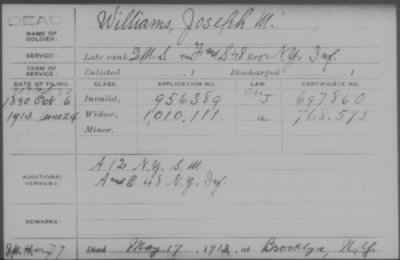 DEAD
NAME OF SOLDIER: Williams, Joseph M.
SERVICE: Late rank 2 M.S. F and S 48 Reg't N.Y. Inf.
TERM OF SERVICE: Enlisted , 1 Discharged , 1
DATE OF FILING. CLASS. APPLICATION NO. LAW. CERTIFICATE NO.
1890 Oct. 6 Invalid, 956389 J 697860
1913 June 24 Widow, 1,010,111 a 768.595
Minor,
ADDITIONAL SERVICES: A 12 N.Y. S.M.
A and C 48 N.Y. Inf.
REMARKS:
Died May 17, 1913, at Brooklyn, N.Y.